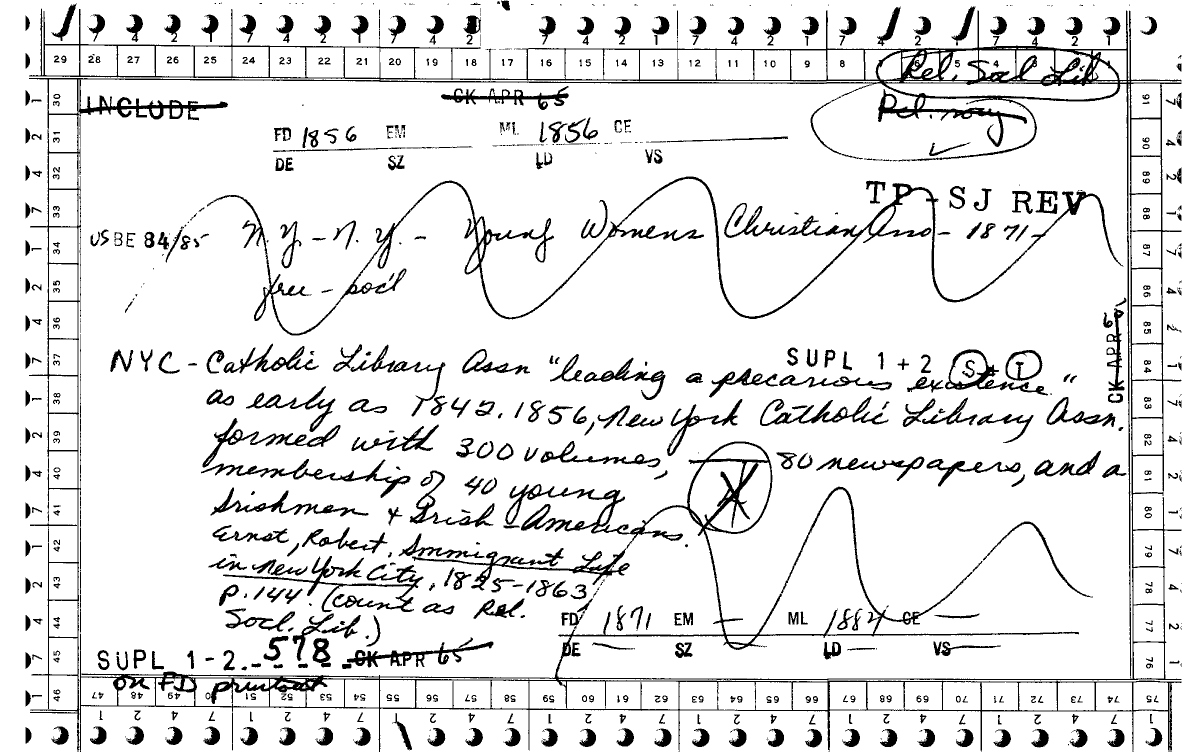 7 4 2 1 7 4 2 1 7 4 2 7 4 2 1 7 4 2 1 7 4 2 1 7 4 2 1
29 28 27 26 25 24 23 22 21 20 19 18 17 16 15 14 13 12 11 10 9 8 7 6 5 4 3
Rel. Socl Lib
INCLUDE
CK APR 65
FD 1856 EM ML 1856 CE
DE SZ LD VS
TP-SJ REV
USBE 84/85 N.Y.-N.Y.- Young Womens Christian Asso- 1871-
free - soc'l
SUPL 1 + 2 S + T
NYC - Catholic Library Assn "leading a precarious existence"
as early as 1842. 1856, New York Catholic Library Assn.
formed with 300 volumes, 80 newspapers, and a
membership of 40 young
Irishmen + Irish-Americans.
Ernst, Robert. Immigrant Life
in New York City, 1825-1863
p. 144. (count as Rel.
Socl. Lib.)
FD 1871 EM — ML 1884 CE —
DE — SZ LD — VS —
SUPL 1-2 - 578 CK APR 65
on FD printout
CK APR 6
30 31 32 33 34 35 36 37 38 39 40 41 42 43 44 45 46
91 90 89 88 87 86 85 84 83 82 81 80 79 78 77 76 75
47 48 49 50 51 52 53 54 55 56 57 58 59 60 61 62 63 64 65 66 67 68 69 70 71 72 73 74
1 2 4 7 1 2 4 7 1 2 4 7 1 2 4 7 1 2 4 7 1 2 4 7 1 2 4 7